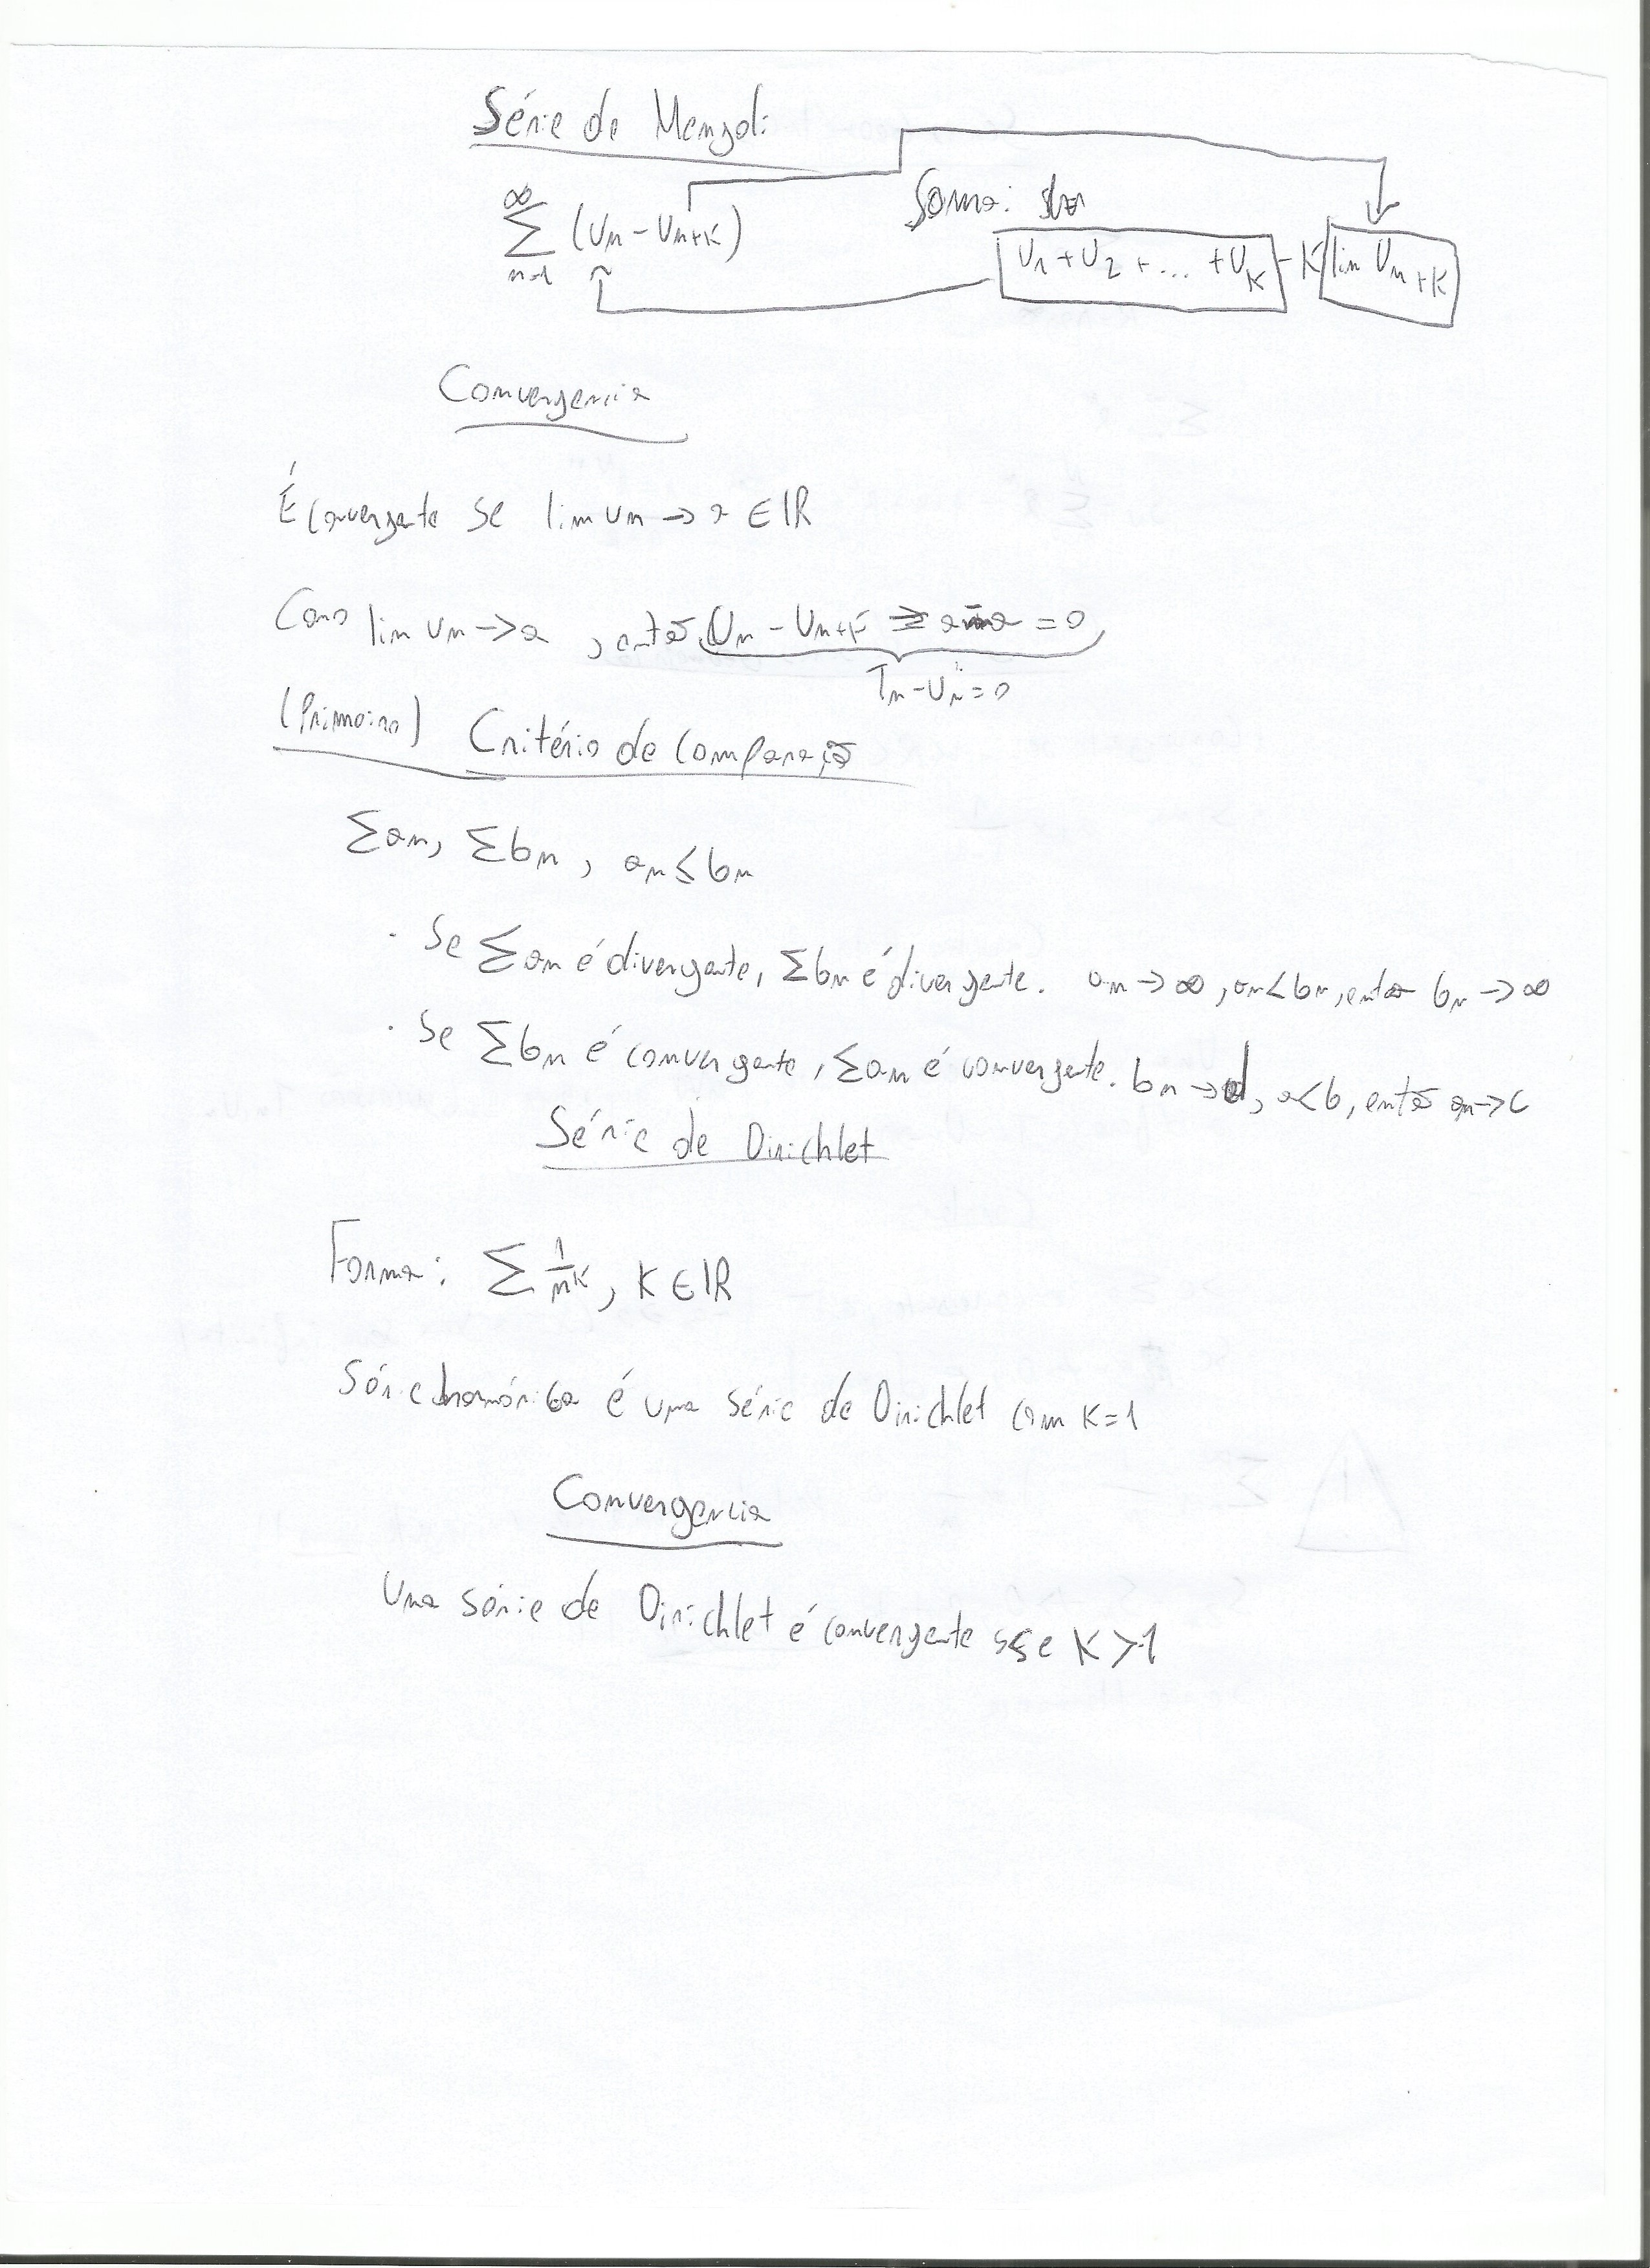 Série de Mengoli
∞
∑ (Un - Un+k)
n=1
Soma:
U1 + U2 + ... + Uk - K lim Un+k
Convergencia
É convergente se lim un → a ∈ IR
Como lim un → a, então Un - Un+k = a - a = 0
Tn - Un = 0
(Primeiro) Critério de Comparação
∑an, ∑bn, an ≤ bn
· Se ∑an é divergente, ∑bn é divergente. an → ∞, an < bn, então bn → ∞
· Se ∑bn é convergente, ∑an é convergente. bn → d, a < b, então an → c
Série de Dirichlet
Forma: ∑ 1/n^k, K ∈ IR
Série harmónica é uma série de Dirichlet com K=1
Convergencia
Uma série de Dirichlet é convergente sse K > 1